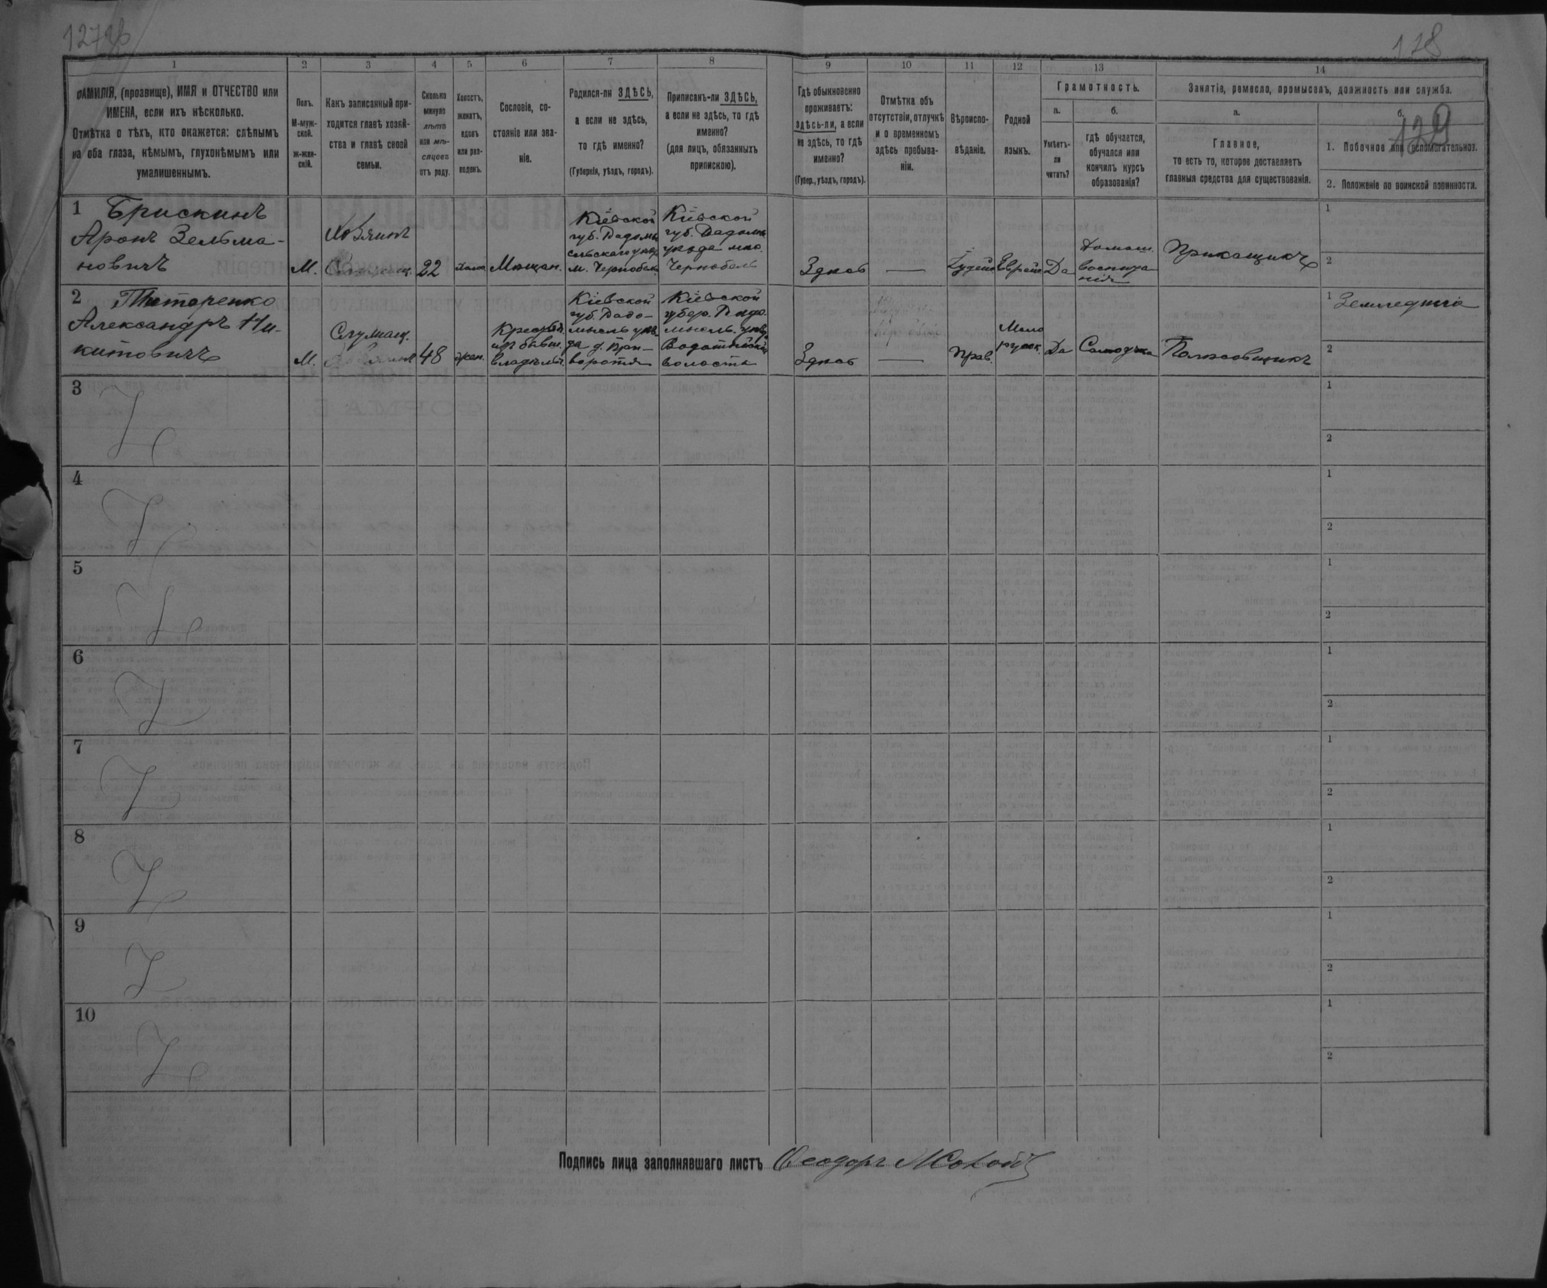 128
129
1
2
3
4
5
6
7
8
9
10
11
12
13
14
ФАМИЛІЯ, (прозвище), ИМЯ и ОТЧЕСТВО или
ИМЕНА, если ихъ нѣсколько.
Отмѣтка о тѣхъ, кто окажется: слѣпымъ
на оба глаза, нѣмымъ, глухонѣмымъ или
умалишеннымъ.
Полъ.
М-муж-
ской.
ж-жен-
скій.
Какъ записанный при-
ходится главѣ хозяй-
ства и главѣ своей
семьи.
Сколько
минуло
лѣтъ
или мѣ-
сяцевъ
отъ роду.
Холостъ,
женатъ,
вдовъ
или раз-
веденъ.
Сословіе, со-
стояніе или зва-
ніе.
Родился-ли ЗДѢСЬ,
а если не здѣсь,
то гдѣ именно?
(Губернія, уѣздъ, городъ).
Приписанъ-ли ЗДѢСЬ,
а если не здѣсь, то гдѣ
именно?
(для лицъ, обязанныхъ
припискою).
Гдѣ обыкновенно
проживаетъ:
здѣсь-ли, а если
не здѣсь, то гдѣ
именно?
(Губер., уѣздъ, городъ).
Отмѣтка объ
отсутствіи, отлучкѣ
и о временномъ
здѣсь пребыва-
ніи.
Вѣроиспо-
вѣданіе.
Родной
языкъ.
Грамотность.
а.
Умѣетъ-
ли
читать?
б.
гдѣ обучается,
обучался или
кончилъ курсъ
образованія?
Занятіе, ремесло, промыселъ, должность или служба.
а.
Главное,
то есть то, которое доставляетъ
главныя средства для существованія.
б.
1. Побочное или вспомогательное.
2. Положеніе по воинской повинности.
1 Брискинъ
Аронъ Зельма-
новичъ
М.
Хозяинъ
22
Мѣщан.
Кіевской
губ. Радомы
сльскаго уѣзд
м. Чернобыл
Кіевской
губ. Радомы
уѣзда мѣс
Чернобыль
Здѣсь
—
Іудей
Еврей
Да
Домаш.
воспита
нія
Приказчикъ
1
2
2 Титаренко
Александръ Ни-
китовичъ
М.
Служащ.
48
жен.
Крестьян.
изъ бывш.
владѣльч.
Кіевской
губ. Радо-
мысль уѣз
да д.
Кіевской
губер. Радо
мысль. уѣзд
волости
Здѣсь
—
Прав.
Мало
русск.
Да
Самоучка
Полѣсовщикъ
1 Земледѣліе
2
3
1
2
4
1
2
5
1
2
6
1
2
7
1
2
8
1
2
9
1
2
10
1
2
Подпись лица заполнявшаго листъ Ѳеодоръ